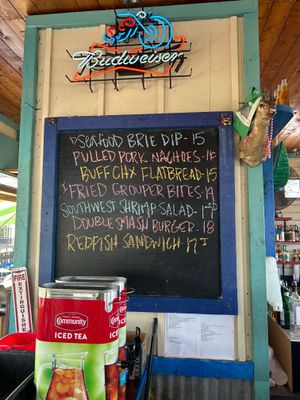 Budweiser
SEAFOOD BRIE DIP - 15
PULLED PORK NACHOES - 16
BUFF CHX FLATBREAD - 15
FRIED GROUPER BITES - 19
SOUTHWEST SHRIMP SALAD - 17
DOUBLE SMASH BURGER - 18
REDFISH SANDWICH 17
FIRE EXTINGUISHER
Community
ICED TEA
Community
ICED TEA